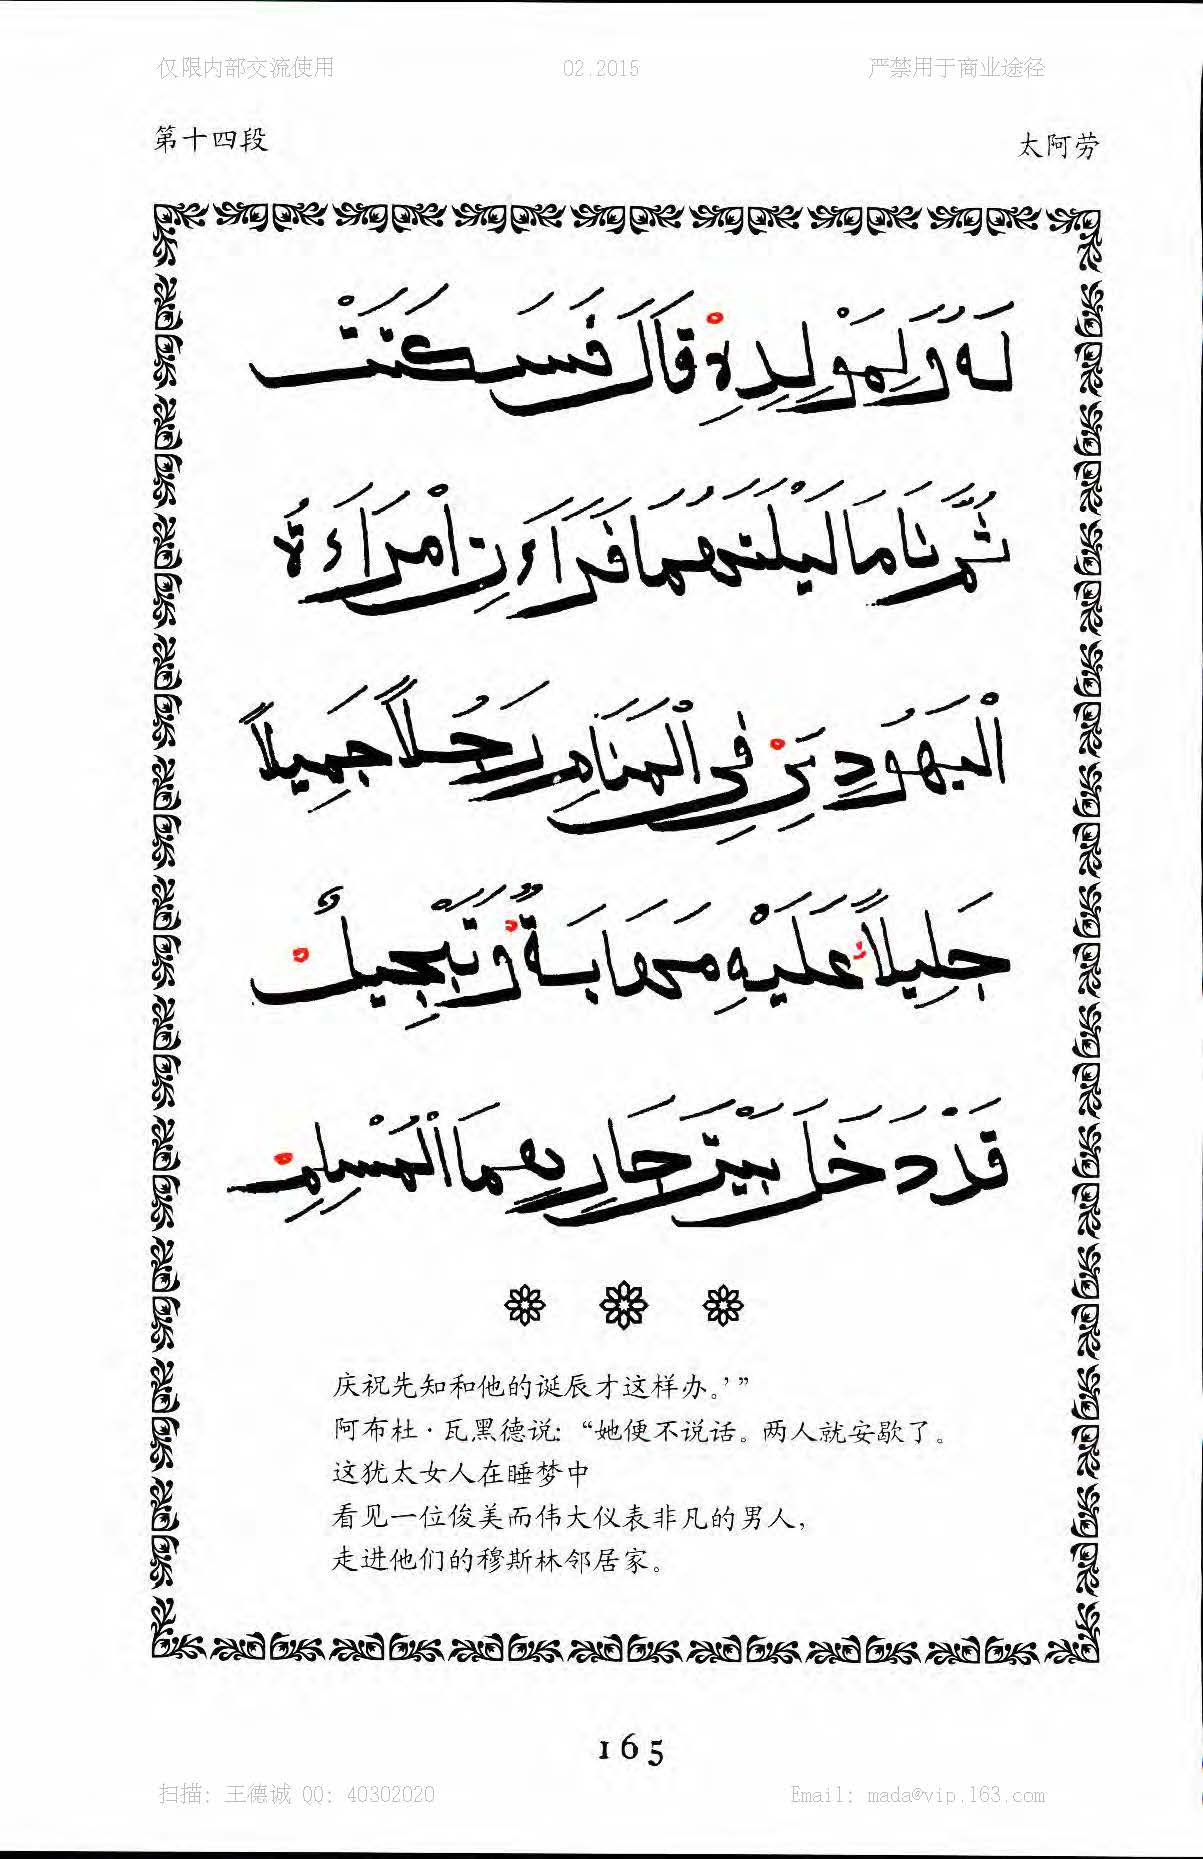 仅限内部交流使用 02.2015 严禁用于商业途径
第十四段 太阿劳
لَهُ وَلِمَوْلِدِهِ قَالَ فَسَكَنَتْ
ثُمَّ نَامَا لَيْلَتَهُمَا فَرَاَءَتِ اْمْرَاَءَةُ
الْيَهُودِيِّ فِي الْمَنَامِ رَجُلاً جَمِيلاً
جَلِيلاً عَلَيْهِ مَهَابَةٌ وَتَبْجِيلٌ
قَدْ دَخَلَ بَيْتَ جَارِهِمَا الْمُسْلِمِ
庆祝先知和他的诞辰才这样办。’”
阿布杜·瓦黑德说:“她便不说话。两人就安歇了。
这犹太女人在睡梦中
看见一位俊美而伟大仪表非凡的男人,
走进他们的穆斯林邻居家。
165
扫描: 王德诚 QQ: 40302020 Email: mada@vip.163.com